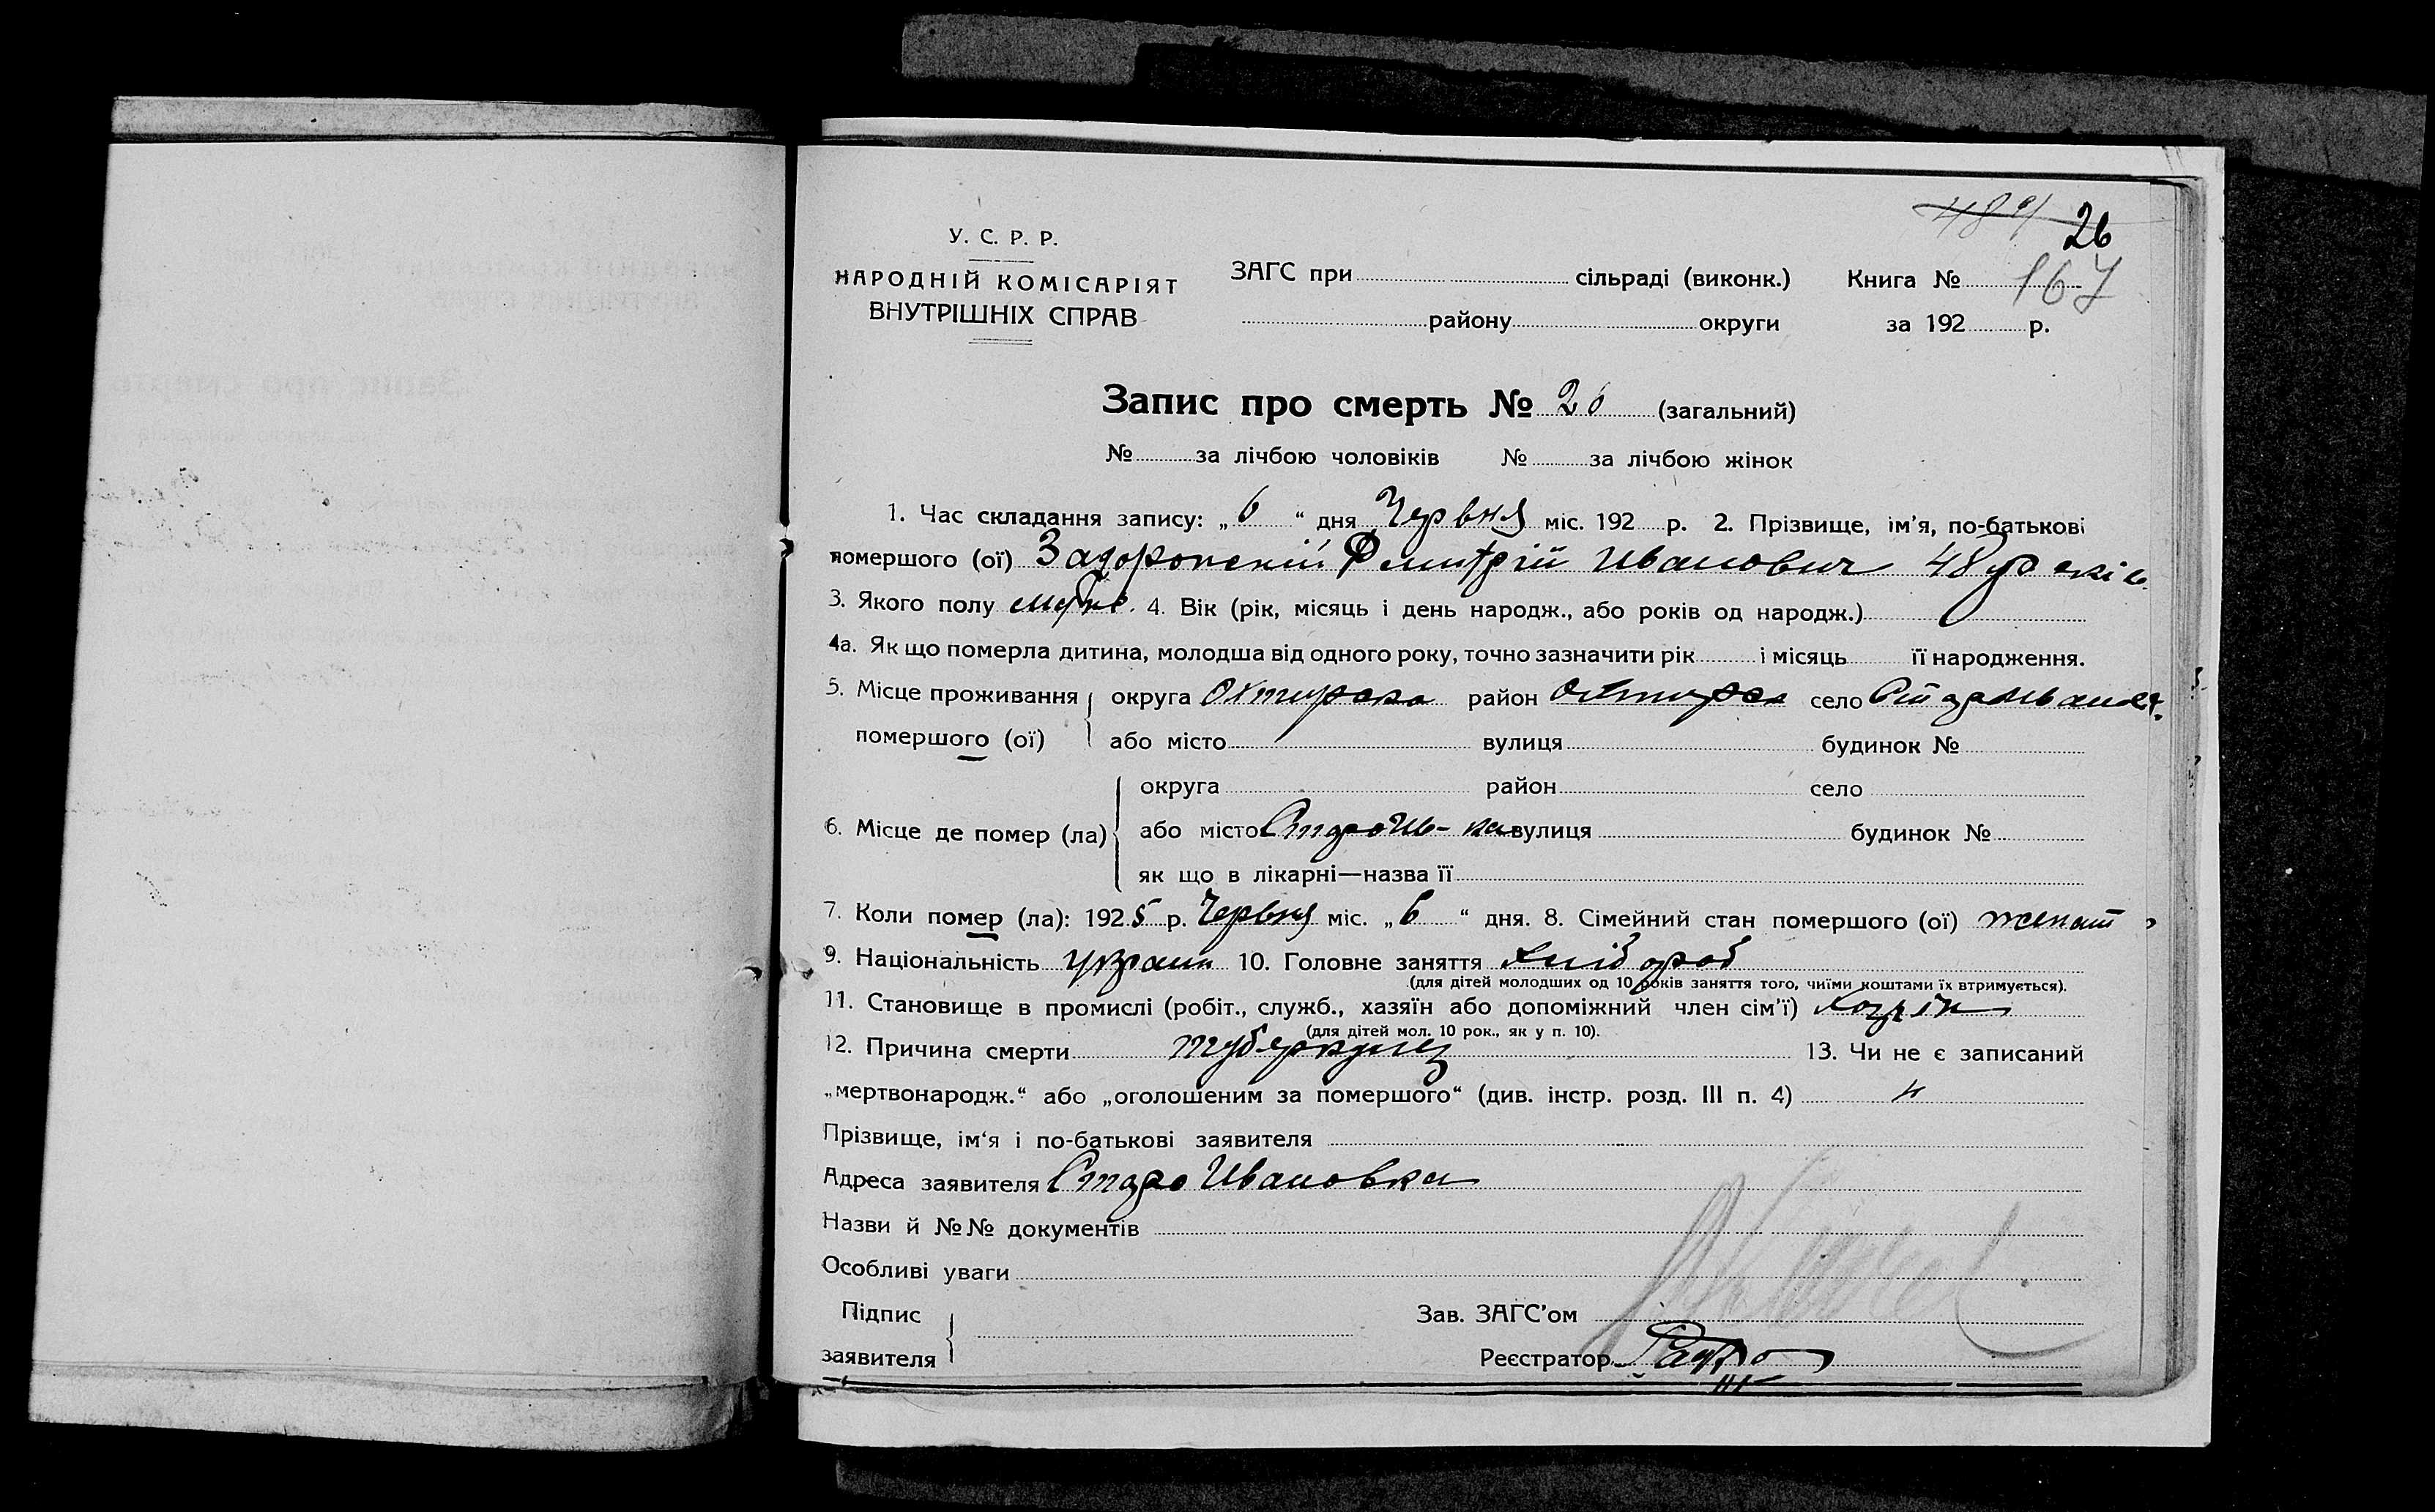 489 26
У. С. Р. Р.
НАРОДНІЙ КОМІСАРІЯТ ВНУТРІШНІХ СПРАВ
ЗАГС при сільраді (виконк.) Книга № 167
району округи за 192 р.
Запис про смерть № 26 (загальний)
№ за лічбою чоловіків № за лічбою жінок
1. Час складання запису: „6“ дня Червня міс. 192 р. 2. Прізвище, ім'я, по-батькові
помершого (ої) Дмитрій Иванович 48 років
3. Якого полу муж. 4. Вік (рік, місяць і день народж., або років од народж.)
4а. Як що померла дитина, молодша від одного року, точно зазначити рік і місяць її народження.
5. Місце проживання помершого (ої) округа Охтирска район Охтирск село
або місто вулиця будинок №
округа район село
6. Місце де помер (ла) або місто СтароИв-ка вулиця будинок №
як що в лікарні—назва її
7. Коли помер (ла): 1925 р. Червня міс. „6“ дня. 8. Сімейний стан помершого (ої) женат
9. Національність україн 10. Головне заняття хлібороб
(для дітей молодших од 10 років заняття того, чиїми коштами їх втримується).
11. Становище в промислі (робіт., служб., хазяїн або допоміжний член сім'ї) хозяїн
(для дітей мол. 10 рок., як у п. 10).
12. Причина смерти туберкульоз 13. Чи не є записаний
„мертвонародж.“ або „оголошеним за помершого“ (див. інстр. розд. III п. 4) н
Прізвище, ім'я і по-батькові заявителя
Адреса заявителя Старо Ивановка
Назви й №№ документів
Особливі уваги
Підпис заявителя
Зав. ЗАГС'ом
Реєстратор